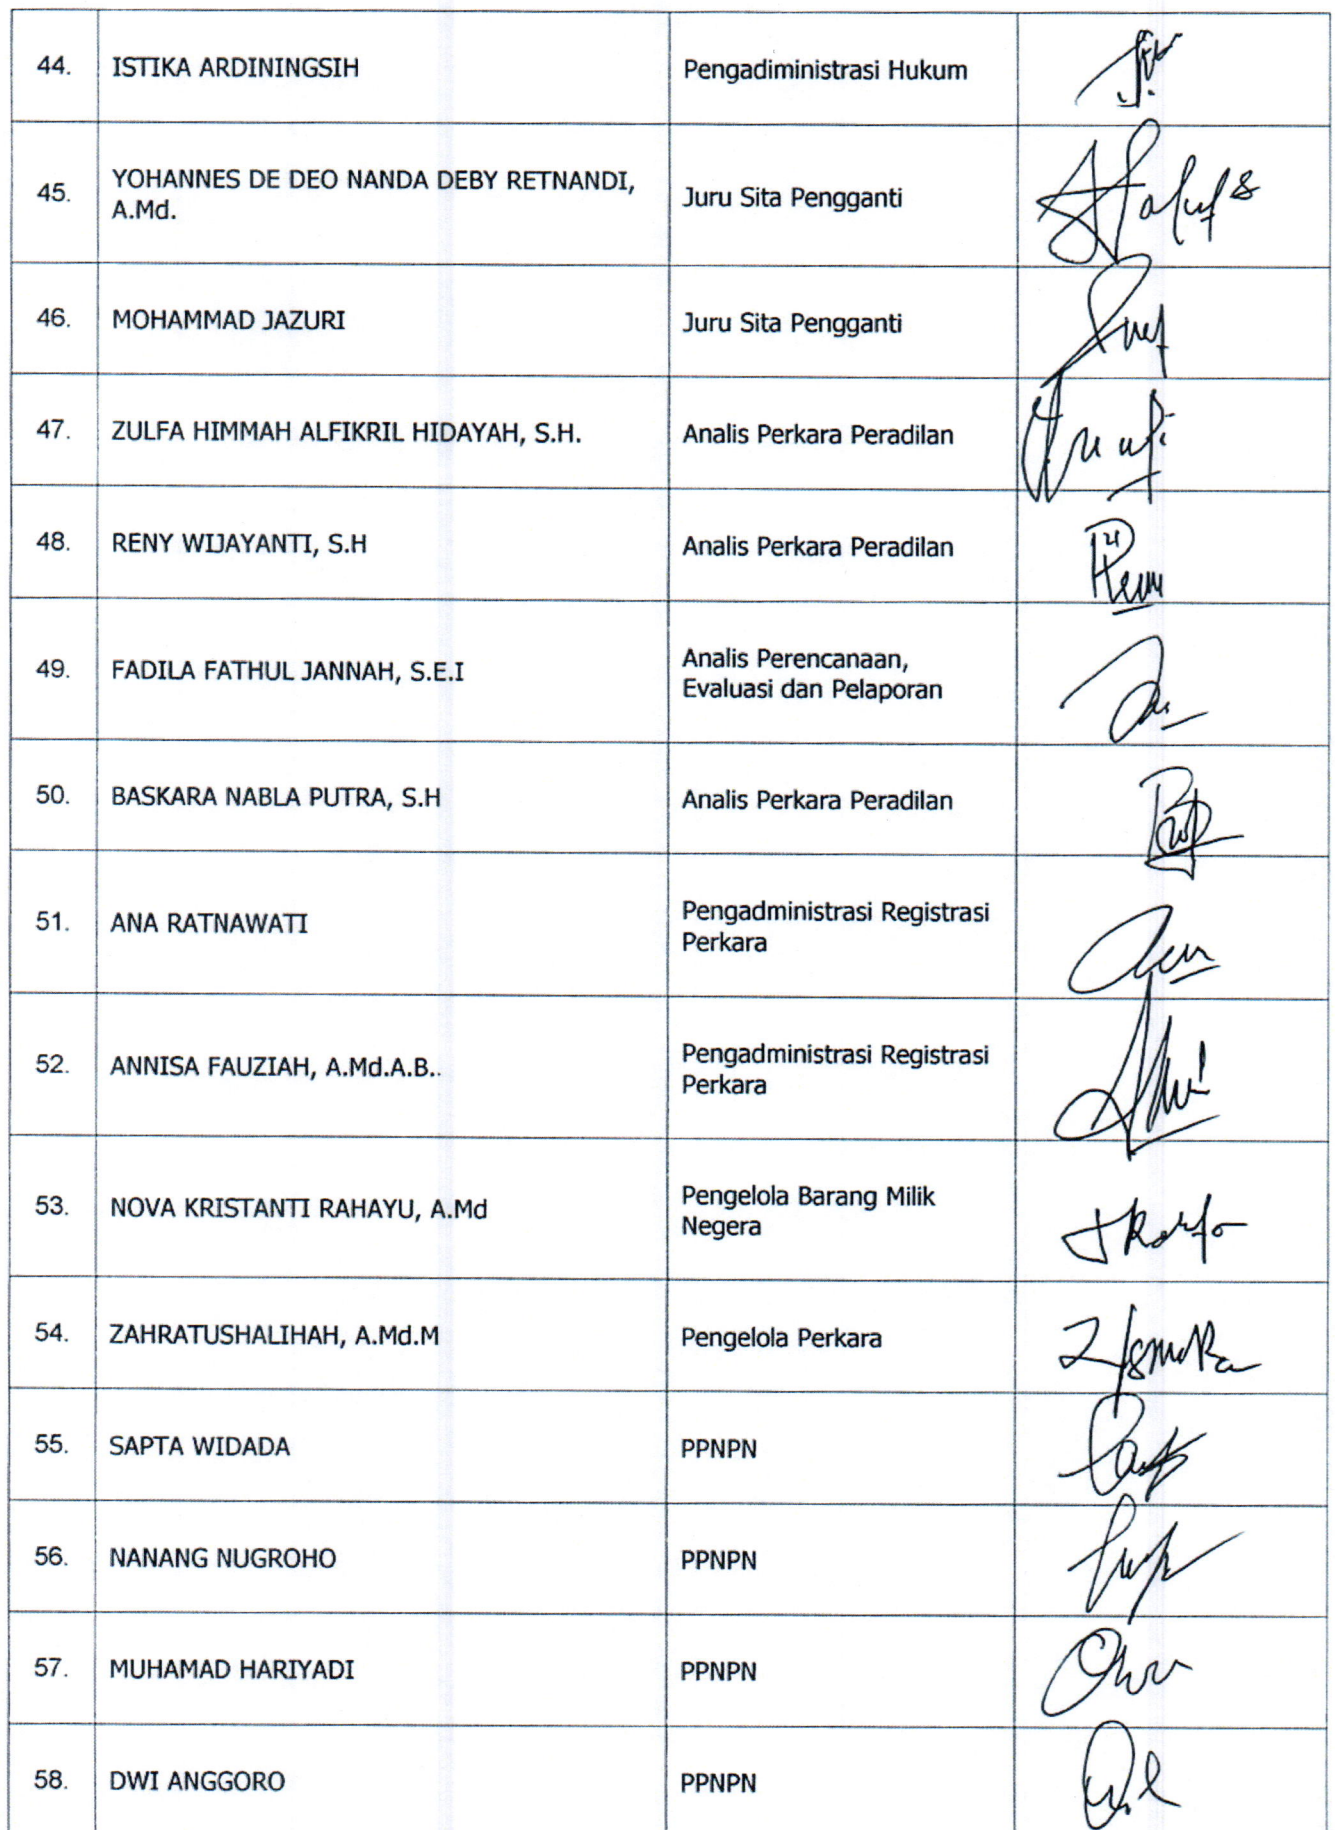 44. ISTIKA ARDININGSIH Pengadiministrasi Hukum
45. YOHANNES DE DEO NANDA DEBY RETNANDI, Juru Sita Pengganti
A.Md.
46. MOHAMMAD JAZURI Juru Sita Pengganti
47. ZULFA HIMMAH ALFIKRIL HIDAYAH, S.H. Analis Perkara Peradilan
48. RENY WIJAYANTI, S.H Analis Perkara Peradilan
49. FADILA FATHUL JANNAH, S.E.I Analis Perencanaan,
Evaluasi dan Pelaporan
50. BASKARA NABLA PUTRA, S.H Analis Perkara Peradilan
51. ANA RATNAWATI Pengadministrasi Registrasi
Perkara
52. ANNISA FAUZIAH, A.Md.A.B.. Pengadministrasi Registrasi
Perkara
53. NOVA KRISTANTI RAHAYU, A.Md Pengelola Barang Milik
Negera
54. ZAHRATUSHALIHAH, A.Md.M Pengelola Perkara
55. SAPTA WIDADA PPNPN
56. NANANG NUGROHO PPNPN
57. MUHAMAD HARIYADI PPNPN
58. DWI ANGGORO PPNPN